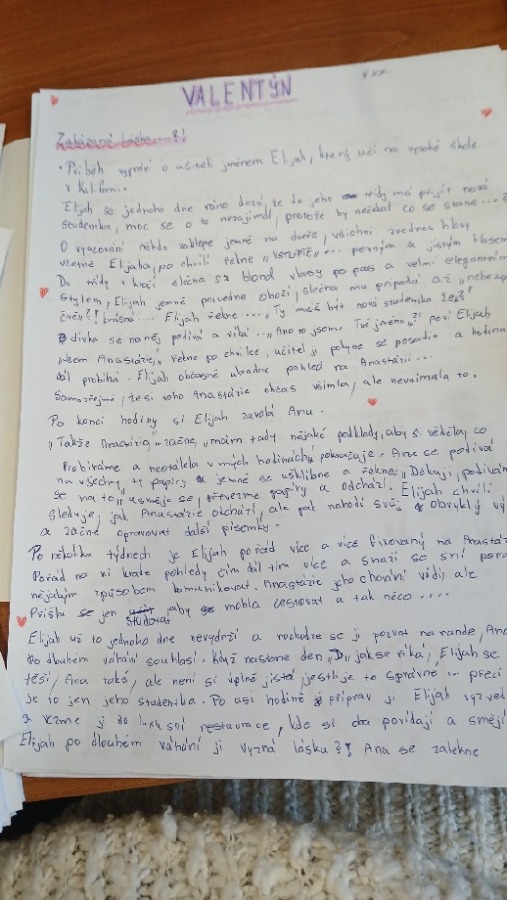 xxx
VALENTÝN
Zakázaná láska...?!
• Příběh vypráví o učiteli jménem Elijah, který učí na vysoké škole
v Kaliforni.
Elijah se jednoho dne ráno dozví, že do jeho třídy má přijít nová
studentka, moc se o to nezajímal, protože by nečekal co se stane...
O vyučování někdo zaklepe jemně na dveře, všichni zvednou hlavy
včetně Elijaha, po chvíli řekne „VSTUPTE"... pevným a jistým hlasem
Do třídy vkročí slečna s blond vlasy po pas a velmi elegantním
stylem, Elijah jemně povedne obočí, slečna mu připadá až „nebezp
čně"?! krásná.... Elijah řekne... „Ty máš být nová studentka že?"
Dívka se na něj podívá a říká.. „Ano to jsem." Tvé jméno"?! poví Elijah
„Jsem Anastázie" řekne po chvilce, učitel jí pokyne se posadit a hodina
dál probíhá. Elijah občasně ukradne pohled na Anastázii...
Samozřejmě, že si toho Anastázie občas všimla, ale nevnímala to.
Po konci hodiny si Elijah zavolá Anu.
„Takže Anastázie," začne, „mám tady nějaké podklady, aby si věděla co
Probíráme a neotálela v mých hodinách," pokračuje. Ana se podívá
na všechny ty papíry a jemně se ušklíbne a řekne, „Děkuji, podívám
se na to" usměje se, převezme papíry a odchází. Elijah chvíli
sleduje, jak Anastázie odchází, ale pak nahodí svůj obvyklý vý
a začne opravovat další písemky.
Po několika týdnech je Elijah pořád více a více fixovaný na Anastáz
Pořád na ni krade pohledy čím dál tím více a snaží se sní
nějakým způsobem komunikovat. Anastázie jeho chování vidí, ale
Přišla se jen studovat, aby mohla cestovat a tak něco....
Elijah už to jednoho dne nevydrží a rozhodne se jí pozvat na rande, Ana
po dlouhém váhání souhlasí. Když nastane den „D" jak se říká, Elijah se
těší, Ana také, ale není si úplně jistá jestli je to správné... přeci
je to jen jeho studentka. Po asi hodině příprav ji Elijah vyzved
a vezme ji do luxusní restaurace, kde si povídají a smějí
Elijah po dlouhém váhání jí vyzná lásku?! Ana se zalekne